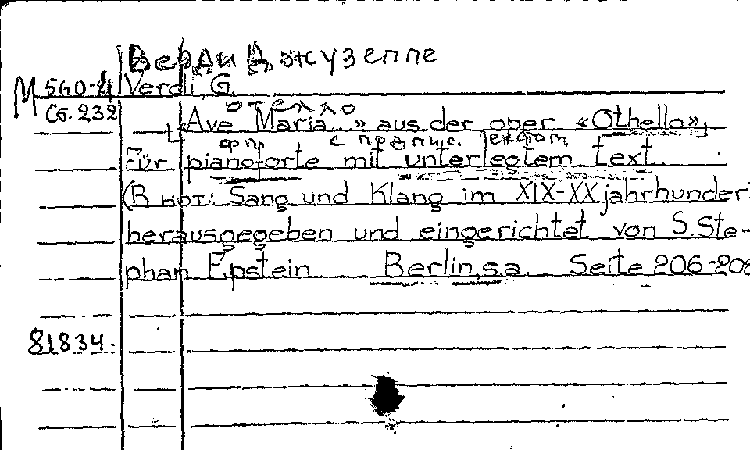 Верди Джузеппе
М 560-4 Verdi, G.
Сб. 232
Отелло
«Ave Maria...» aus der oper «Othello»,
фп. с подпис. текстом
für pianoforte mit unterlegtem text.
(В нот: Sang und Klang im XIX-XX jahrhundert
herausgegeben und eingerichtet von S. Ste-
phan Epstein Berlin, s.a. Seite 206-208
81834